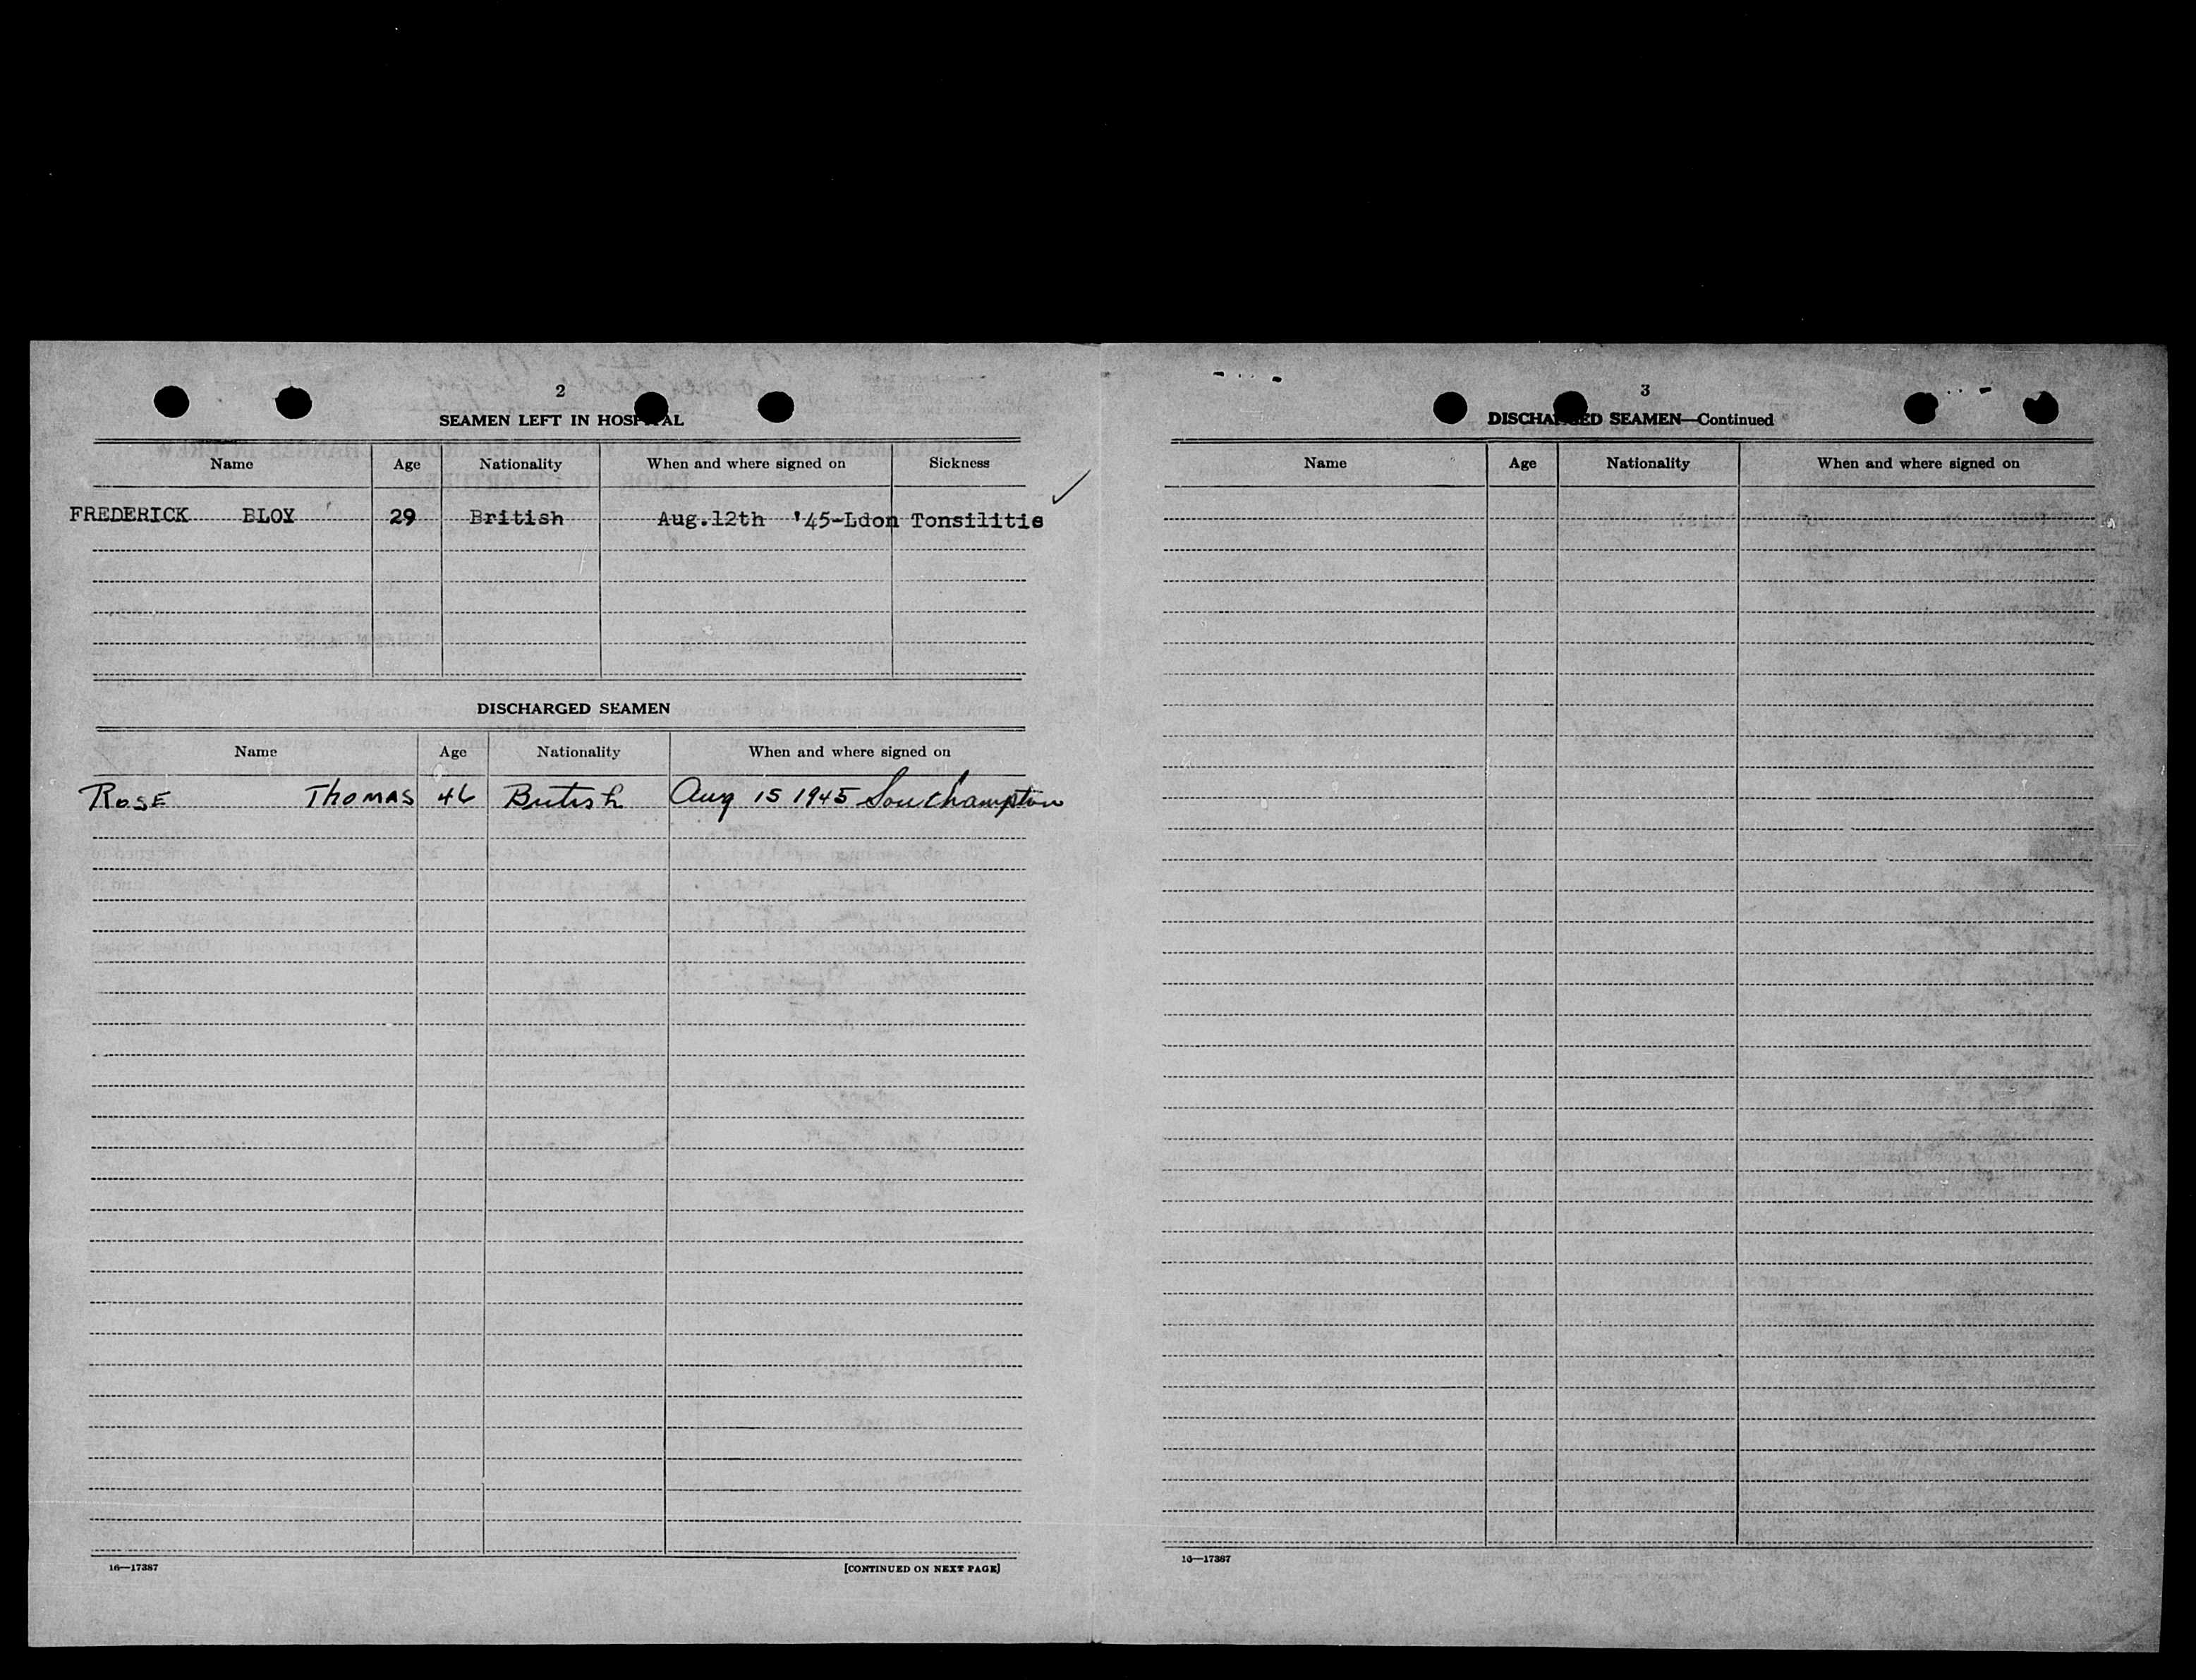 2
SEAMEN LEFT IN HOSPITAL
Name Age Nationality When and where signed on Sickness
FREDERICK BLOY 29 British Aug.12th '45-Ldon Tonsilitis
DISCHARGED SEAMEN
Name Age Nationality When and where signed on
ROSE THOMAS 46 British Aug 15 1945 Southampton
16—17387 [CONTINUED ON NEXT PAGE]
3
DISCHARGED SEAMEN—Continued
Name Age Nationality When and where signed on
16—17387